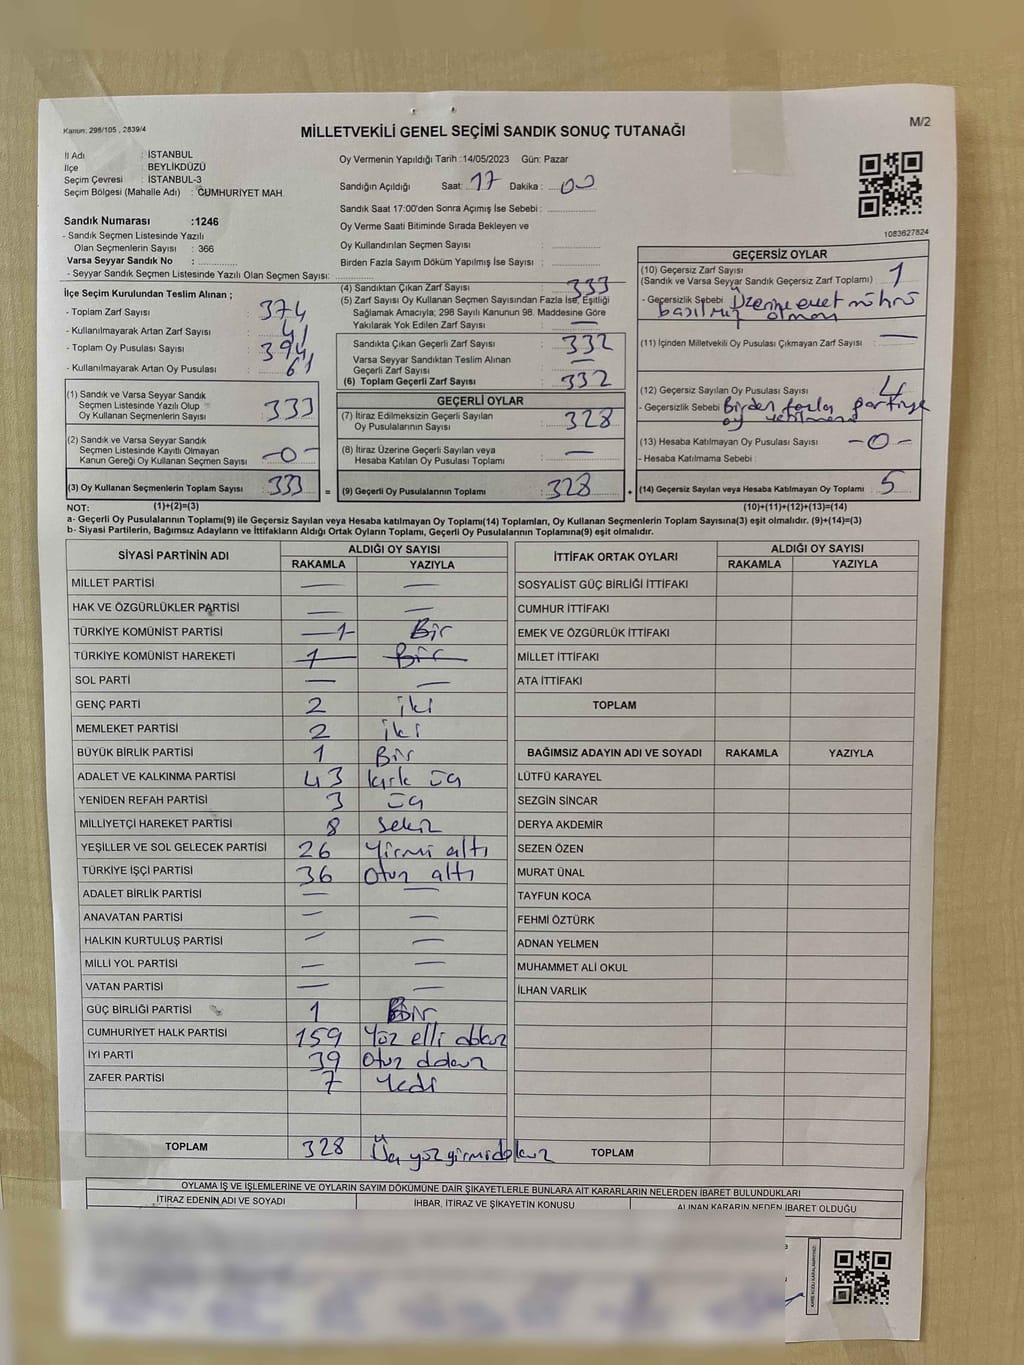 Kanun: 298/105 , 2839/4
M/2
MİLLETVEKİLİ GENEL SEÇİMİ SANDIK SONUÇ TUTANAĞI
İl Adı : İSTANBUL
İlçe : BEYLİKDÜZÜ
Seçim Çevresi : İSTANBUL-3
Seçim Bölgesi (Mahalle Adı) : CUMHURİYET MAH.
Sandık Numarası :1246
- Sandık Seçmen Listesinde Yazılı
Olan Seçmenlerin Sayısı : 366
Varsa Seyyar Sandık No :
- Seyyar Sandık Seçmen Listesinde Yazılı Olan Seçmen Sayısı:
Oy Vermenin Yapıldığı Tarih :14/05/2023 Gün: Pazar
Sandığın Açıldığı Saat: 17 Dakika : 00
Sandık Saat 17:00'den Sonra Açımış İse Sebebi :
Oy Verme Saati Bitiminde Sırada Bekleyen ve
Oy Kullandırılan Seçmen Sayısı :
Birden Fazla Sayım Döküm Yapılmış İse Sayısı :
1083627824
İlçe Seçim Kurulundan Teslim Alınan ;
- Toplam Zarf Sayısı : 374
- Kullanılmayarak Artan Zarf Sayısı : 41
- Toplam Oy Pusulası Sayısı : 394
- Kullanılmayarak Artan Oy Pusulası : 61
(1) Sandık ve Varsa Seyyar Sandık
Seçmen Listesinde Yazılı Olup
Oy Kullanan Seçmenlerin Sayısı : 333
(2) Sandık ve Varsa Seyyar Sandık
Seçmen Listesinde Kayıtlı Olmayan
Kanun Gereği Oy Kullanan Seçmen Sayısı : -0-
(3) Oy Kullanan Seçmenlerin Toplam Sayısı : 333
(4) Sandıktan Çıkan Zarf Sayısı : 333
(5) Zarf Sayısı Oy Kullanan Seçmen Sayısından Fazla İse, Eşitliği
Sağlamak Amacıyla; 298 Sayılı Kanunun 98. Maddesine Göre
Yakılarak Yok Edilen Zarf Sayısı : —
Sandıkta Çıkan Geçerli Zarf Sayısı : 332
Varsa Seyyar Sandıktan Teslim Alınan
Geçerli Zarf Sayısı : —
(6) Toplam Geçerli Zarf Sayısı : 332
GEÇERLİ OYLAR
(7) İtiraz Edilmeksizin Geçerli Sayılan
Oy Pusulalarının Sayısı : 328
(8) İtiraz Üzerine Geçerli Sayılan veya
Hesaba Katılan Oy Pusulası Toplamı : —
= (9) Geçerli Oy Pusulalarının Toplamı : 328
GEÇERSİZ OYLAR
(10) Geçersiz Zarf Sayısı
(Sandık ve Varsa Seyyar Sandık Geçersiz Zarf Toplamı) : 1
- Geçersizlik Sebebi : Üzerine evet mührü
basılmış olması
(11) İçinden Milletvekili Oy Pusulası Çıkmayan Zarf Sayısı : —
(12) Geçersiz Sayılan Oy Pusulası Sayısı : 4
- Geçersizlik Sebebi Birden fazla partiye
oy verilmesi
(13) Hesaba Katılmayan Oy Pusulası Sayısı : -0-
- Hesaba Katılmama Sebebi :
+ (14) Geçersiz Sayılan veya Hesaba Katılmayan Oy Toplamı : 5
NOT: (1)+(2)=(3) (10)+(11)+(12)+(13)=(14)
a- Geçerli Oy Pusulalarının Toplamı(9) ile Geçersiz Sayılan veya Hesaba katılmayan Oy Toplamı(14) Toplamları, Oy Kullanan Seçmenlerin Toplam Sayısına(3) eşit olmalıdır. (9)+(14)=(3)
b- Siyasi Partilerin, Bağımsız Adayların ve İttifakların Aldığı Ortak Oyların Toplamı, Geçerli Oy Pusulalarının Toplamına(9) eşit olmalıdır.
SİYASİ PARTİNİN ADI ALDIĞI OY SAYISI
RAKAMLA YAZIYLA
MİLLET PARTİSİ — —
HAK VE ÖZGÜRLÜKLER PARTİSİ — —
TÜRKİYE KOMÜNİST PARTİSİ —1- Bir
TÜRKİYE KOMÜNİST HAREKETİ 1 Bir
SOL PARTİ — —
GENÇ PARTİ 2 iki
MEMLEKET PARTİSİ 2 iki
BÜYÜK BİRLİK PARTİSİ 1 Bir
ADALET VE KALKINMA PARTİSİ 43 kırk üç
YENİDEN REFAH PARTİSİ 3 üç
MİLLİYETÇİ HAREKET PARTİSİ 8 sekiz
YEŞİLLER VE SOL GELECEK PARTİSİ 26 Yirmi altı
TÜRKİYE İŞÇİ PARTİSİ 36 Otuz altı
ADALET BİRLİK PARTİSİ — —
ANAVATAN PARTİSİ — —
HALKIN KURTULUŞ PARTİSİ — —
MİLLİ YOL PARTİSİ — —
VATAN PARTİSİ — —
GÜÇ BİRLİĞİ PARTİSİ 1 Bir
CUMHURİYET HALK PARTİSİ 159 Yüz elli dokuz
İYİ PARTİ 39 Otuz dokuz
ZAFER PARTİSİ 7 Yedi
TOPLAM 328 Üç yüz yirmidokuz
İTTİFAK ORTAK OYLARI ALDIĞI OY SAYISI
RAKAMLA YAZIYLA
SOSYALİST GÜÇ BİRLİĞİ İTTİFAKI
CUMHUR İTTİFAKI
EMEK VE ÖZGÜRLÜK İTTİFAKI
MİLLET İTTİFAKI
ATA İTTİFAKI
TOPLAM
BAĞIMSIZ ADAYIN ADI VE SOYADI RAKAMLA YAZIYLA
LÜTFÜ KARAYEL
SEZGİN SİNCAR
DERYA AKDEMİR
SEZEN ÖZEN
MURAT ÜNAL
TAYFUN KOCA
FEHMİ ÖZTÜRK
ADNAN YELMEN
MUHAMMET ALİ OKUL
İLHAN VARLIK
TOPLAM
OYLAMA İŞ VE İŞLEMLERİNE VE OYLARIN SAYIM DÖKÜMÜNE DAİR ŞİKAYETLERLE BUNLARA AİT KARARLARIN NELERDEN İBARET BULUNDUKLARI
İTİRAZ EDENİN ADI VE SOYADI İHBAR, İTİRAZ VE ŞİKAYETİN KONUSU ALINAN KARARIN NEDEN İBARET OLDUĞU
KARE KODU KARALAMAYINIZ!